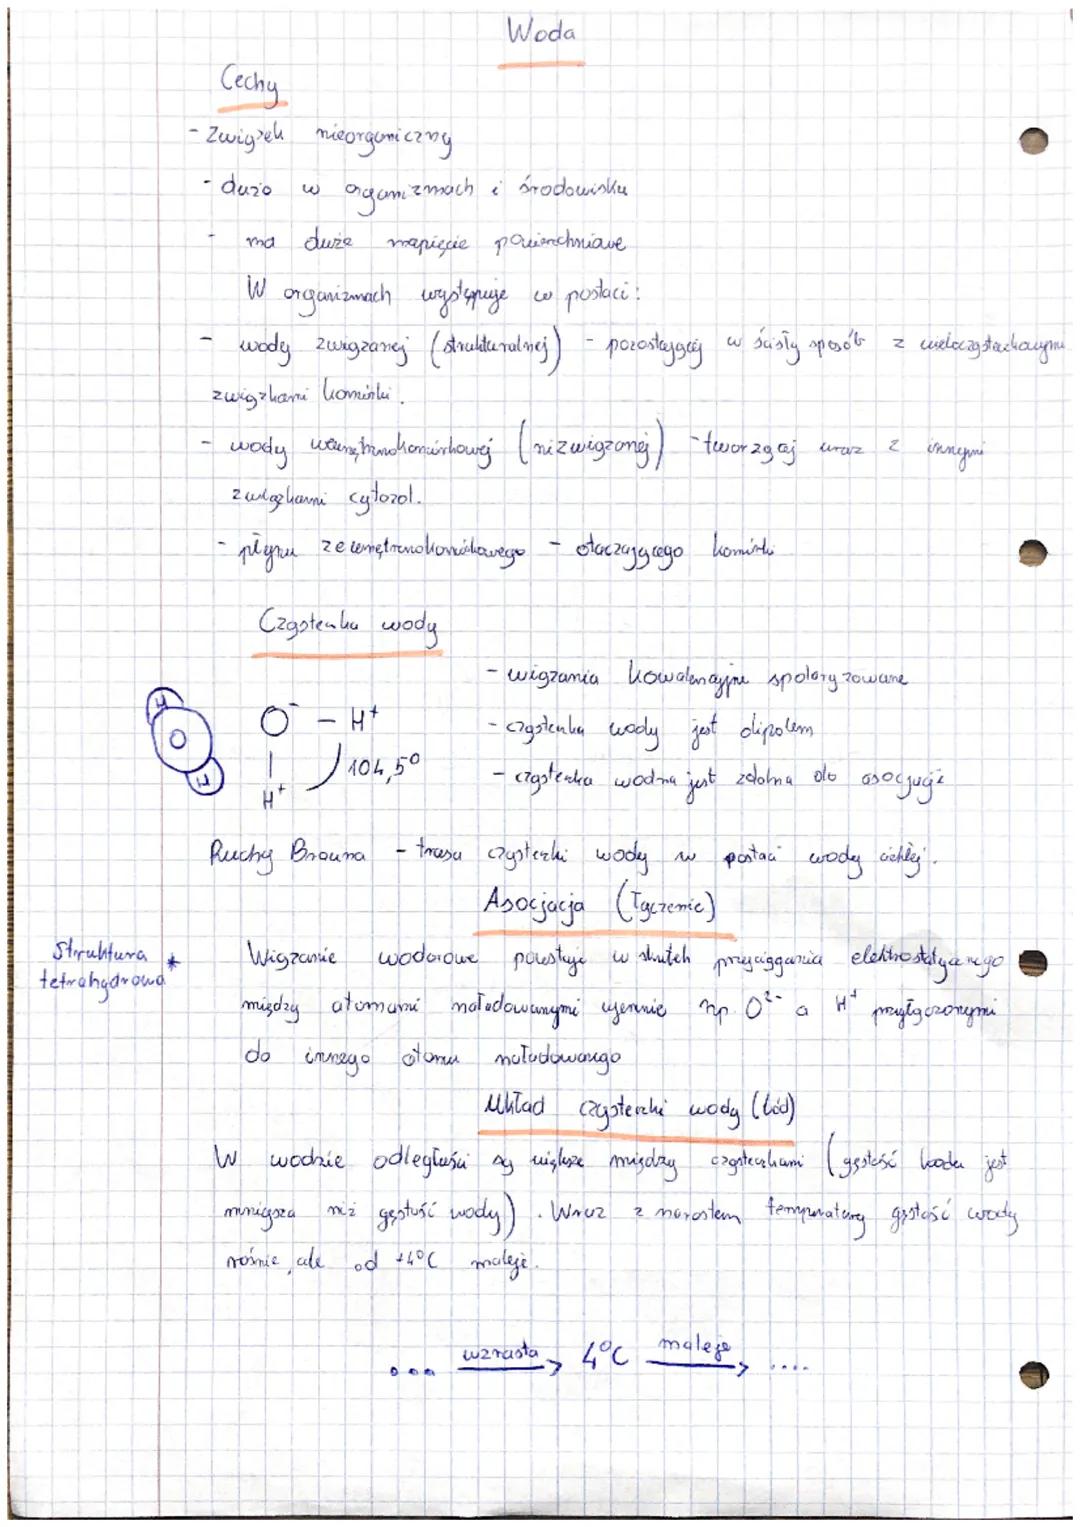 Woda
Cechy
- Związek nieorganiczny
- dużo w organizmach i środowisku
- ma duże napięcie powierzchniowe
W organizmach występuje w postaci:
- wody związanej (strukturalnej) - pozostającej w ścisły sposób z wielocząsteczkowymi
związkami komórki.
- wody wewnątrzkomórkowej (niezwiązanej) - tworzącej wraz z innymi
związkami cytozol.
- płynu zewnętrznokomórkowego - otaczającego komórki
Cząsteczka wody
- wiązania kowalencyjne spolaryzowane
H
O
H
O⁻ - H⁺
- cząsteczka wody jest dipolem
104,5°
H⁺
- cząsteczka wodna jest zdolna do asocjacji
Ruchy Browna - trasa cząsteczki wody w postaci wody ciekłej.
Asocjacja (łączenie)
Struktura
tetrahydrowa *
Wiązanie wodorowe powstaje w skutek przyciągania elektrostatycznego
między atomami naładowanymi ujemnie np. O²⁻ a H⁺ przyłączonymi
do innego atomu naładowanego
Układ cząsteczki wody (lód)
W wodzie odległości są większe między cząsteczkami (gęstość lodu jest
mniejsza niż gęstość wody). Wraz z wzrostem temperatury gęstość wody
rośnie, ale od +4°C maleje.
... wzrasta → 4°C maleje → ....